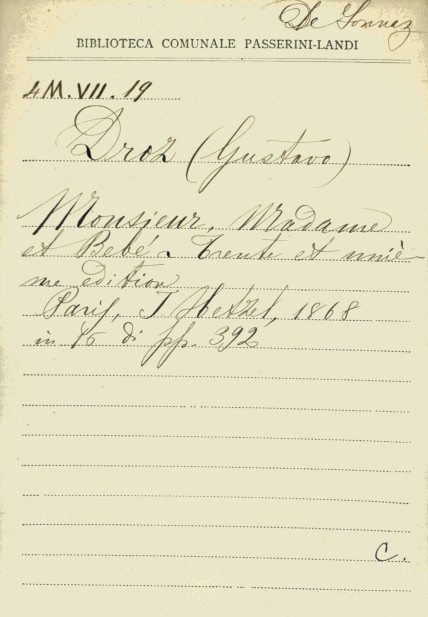 De Sonnaz
BIBLIOTECA COMUNALE PASSERINI-LANDI
4M.VII.19
Droz (Gustavo)
Monsieur, Madame
et Bebé - Trente et uniè-
me edition
Paris, J Hetzel, 1868
in 16 di pp. 392
C.